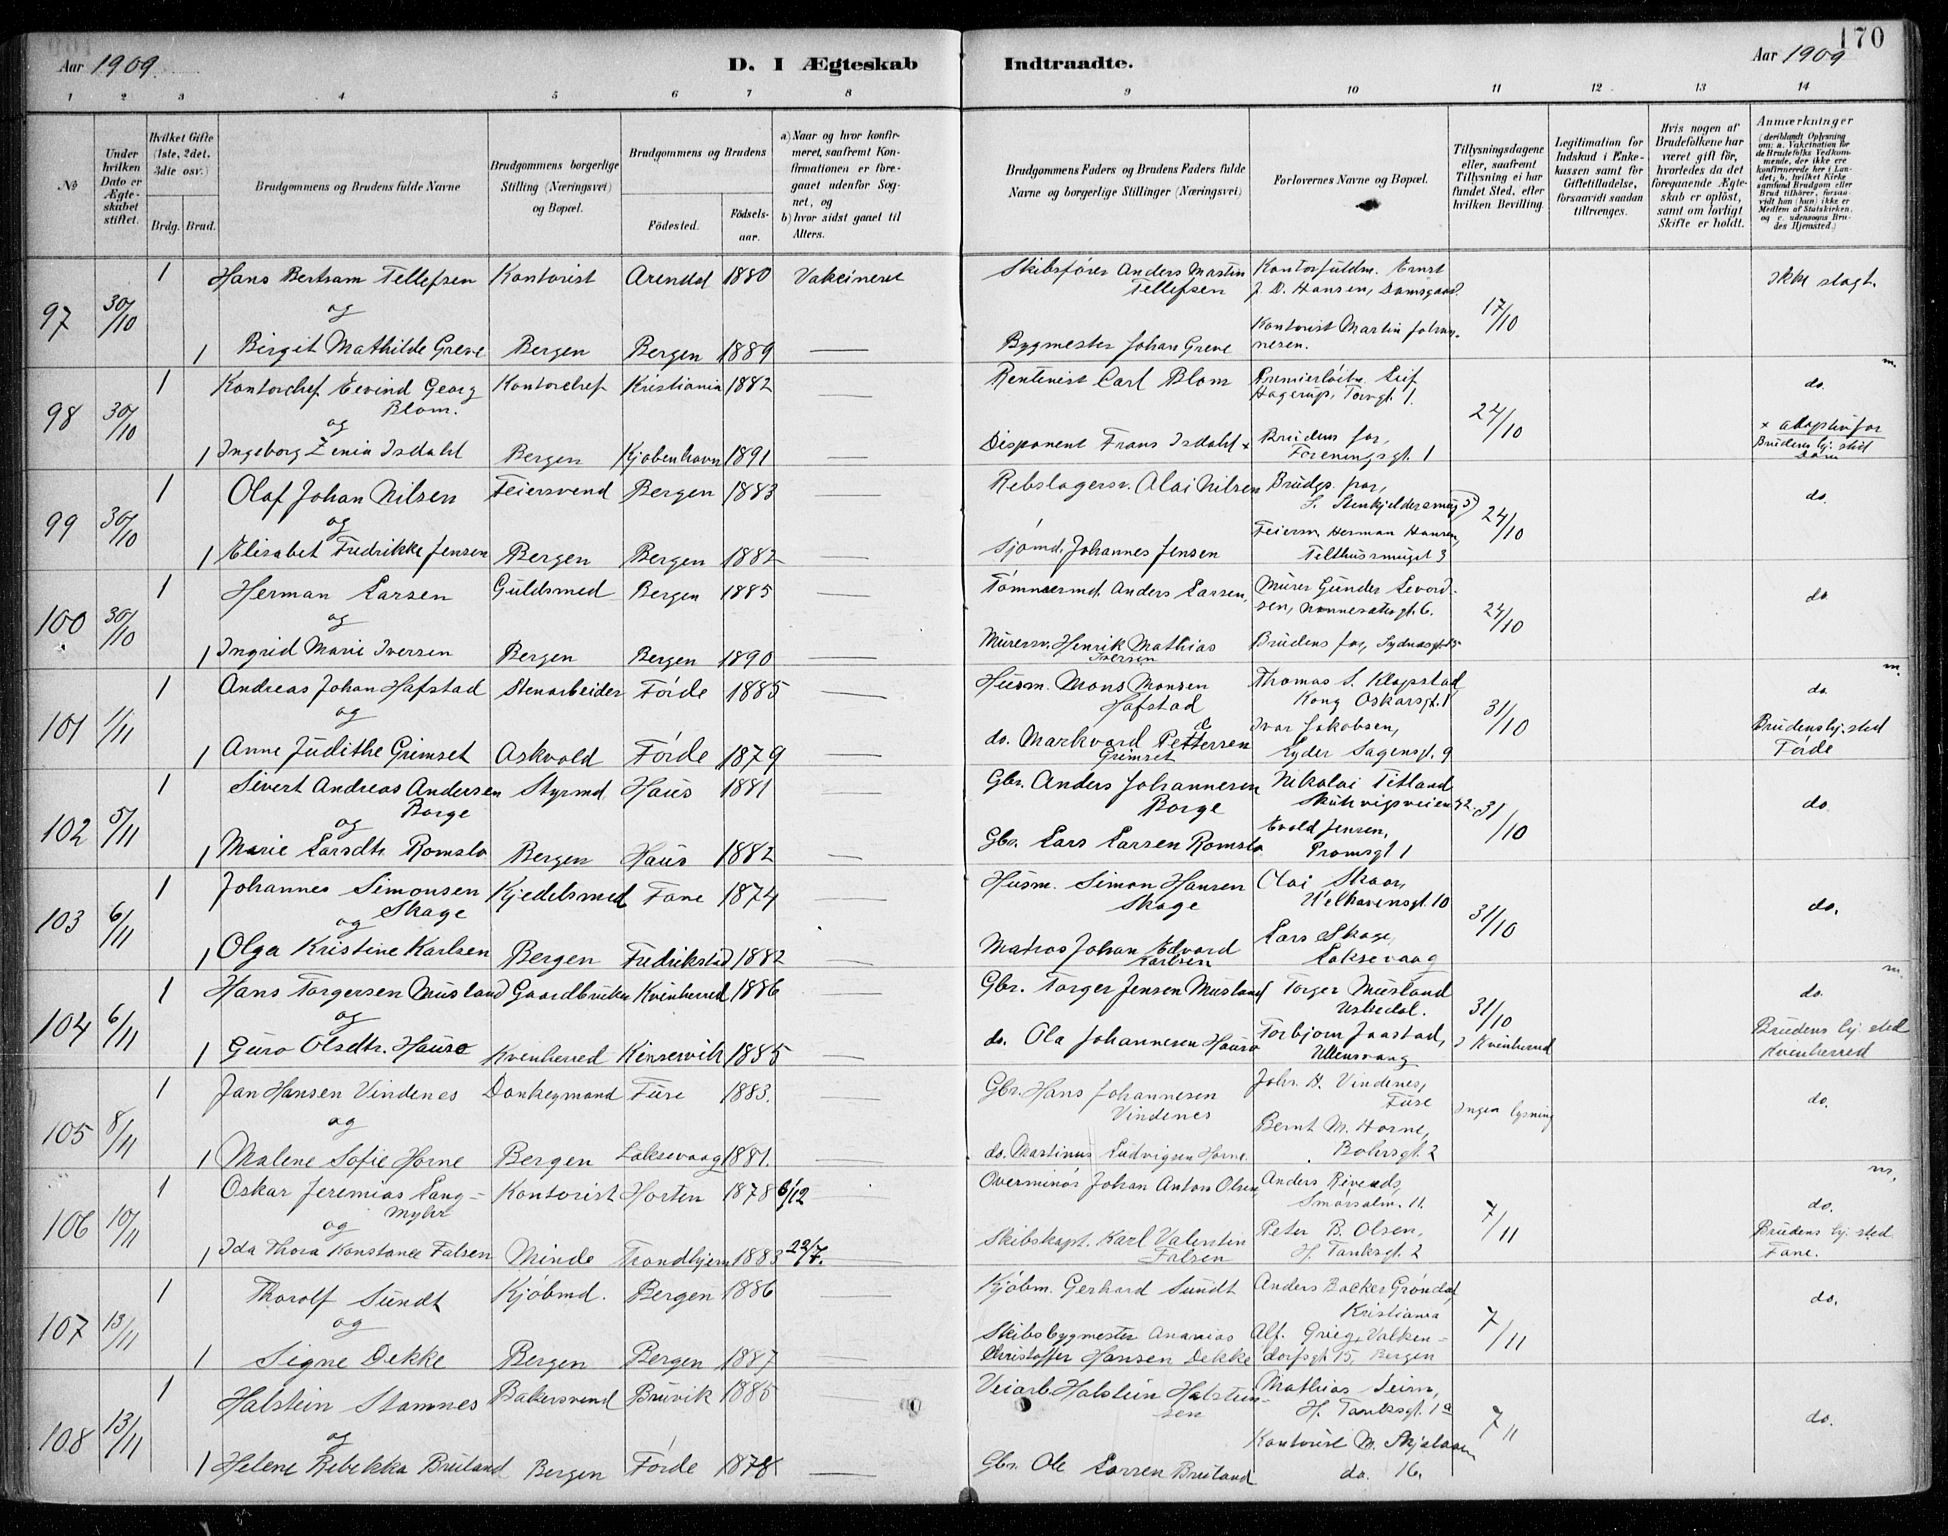 170
Aar 1909.
D. I Ægteskab
Indtraadte.
Aar 1909
1 2 3 4 5 6 7 8
9 10 11 12 13 14
No
Under hvilken Dato er Ægteskabet stiftet.
Hvilket Gifte (1ste, 2det, 3die osv.)
Brdg. Brud.
Brudgommens og Brudens fulde Navne
Brudgommens borgerlige Stilling (Næringsvei) og Bopæl.
Brudgommens og Brudens
Födested.
Födselsaar.
a) Naar og hvor konfirmeret, saafremt Konfirmationen er foregaaet udenfor Sognet, og
b) hvor sidst gaaet til Alters.
Brudgommens Faders og Brudens Faders fulde Navne og borgerlige Stillinger (Næringsvei)
Forlovernes Navne og Bopæl.
Tillysningsdagene eller, saafremt Tillysning ei har fundet Sted, efter hvilken Bevilling.
Legitimation for Indskud i Enkekassen samt for Giftetilladelse, forsaavidt saadan tiltrænges.
Hvis nogen af Brudefolkene har været gift för, hvorledes da det foregaaende Ægteskab er oplöst, samt om lovligt Skifte er holdt.
Anmærkninger
(deriblandt Oplysning om: a. Vakcination for de Brudefolks Vedkommende, der ikke ere konfirmerede her i Landet; b. hvilket Kirkesamfund Brudgom eller Brud tilhörer, forsaavidt han (hun) ikke er Medlem af Statskirken, og c. udensogns Brudes Hjemsted.)
97 30/10 1 Hans Bertram Tellefsen Kontorist Arendal 1880 Vakcineret Skibsförer Anders Martin Tellefsen Kontorfuldm. Ernst J. D. Hansen, Damsgaard. 17/10 Ikke slagt.
og
1 Birgit Mathilde Greve Bergen Bergen 1889 — Bygmester Johan Greve Kontorist Martin Johannesen.
98 30/10 1 Kontorchef Eivind Georg Blom. Kontorchef Kristiania 1882 — Rentenist Carl Blom Premierlöitn. Leif Hagerup, Torvgt 1. 24/10 do. m.
og
1 Ingeborg Zenia Isdahl Bergen Kjöbenhavn 1891 — Disponent Frans Isdahl x Brudens far, Foreningsgt. 1 x adoptivfar Brudens hj. sted
99 30/10 1 Olaf Johan Nilsen Feiersvend Bergen 1883 — Rebslagersv. Olai Nilsen Brudgs. far, L. Stenkjeldersmug 5) 24/10 do.
og
1 Elisabet Fredrikke Jensen Bergen Bergen 1882 — Sjömd. Johannes Jensen Feiersv. Herman Hansen, Telthussmuget 3
100 30/10 1 Herman Larsen Guldsmed Bergen 1885 — Tömmermd. Anders Larsen, Murer Gunder Sevordsen, Nonnesætergt. 6. 24/10 do.
og
1 Ingrid Marie Iversen Bergen Bergen 1890 — Murersv. Henrik Mathias Iversen Brudens far, Sydnesgt 25
101 1/11 1 Andreas Johan Hafstad Stenarbeider Förde 1885 — Husm. Mons Monsen Hafstad Thomas S. Klopstad Kong Oskarsgt. 1 31/10 do. m.
og
1 Anne Judithe Grimset Askvold Förde 1879 — do. Markvard Pettersen Grimset Ivar Jakobsen, Lyder Sagensgt. 9 Brudens hj. sted Förde
102 5/11 1 Sivert Andreas Andersen Borge Styrmd. Haus 1881 — Gbr. Anders Johannesen Borge Nikolai Titland Skuteviksveien 42. 31/10 do.
og
1 Marie Larsdtr. Romslo Bergen Haus 1882 — Gbr. Lars Larsen Romslo Evold Jensen, Promsgt 1
103 6/11 1 Johannes Simonsen Skage Kjedelsmed Fane 1874 — Husm. Simon Hansen Skage Olai Skaar, Welhavensgt. 10 31/10 do.
og
1 Olga Kristine Karlsen Bergen Fredrikstad 1882 — Matros Johan Edvard Karlsen Lars Skage, Laksevaag
104 6/11 1 Hans Torgersen Musland Gaardbruker Kvinherred 1886 — Gbr. Torger Jensen Musland Torger Musland Uskedal. 31/10 i Kvinherred do. m.
og
1 Guro Olsdtr. Hauso Kvinherred Kinservik 1885 — do. Ola Johannesen Hauso Torbjorn Jaastad, Ullensvang Brudens hj. sted Kvinherred
105 8/11 1 Jan Hansen Vindenes Donkeymand Fuse 1883. — Gbr. Hans Johannesen Vindenes Johs. H. Vindenes, Fuse Ingen lysning do.
og
1 Malene Sofie Horne Bergen Laksevaag 1881. — do. Martinus Ludvigsen Horne. Bernt M. Horne, Bohrsgt. 2
106 10/11 1 Oskar Jeremias Langmyhr Kontorist Horten 1878 6/12 — Overminör Johan Anton Olsen Anders Rivends, Smörsalm. 11. 7/11 do. m.
og
1 Ida Thora Konstance Falsen Minde Trondhjem 1883 22/7. — Skibskapt. Karl Valentin Falsen Peter B. Olsen, H. Tanksgt. 2 Brudens hj. sted Fane.
107 13/11 1 Thorolf Sundt Kjöbmd. Bergen 1886 — Kjöbm. Gerhard Sundt Anders Backer Gröndal Kristiania 7/11 do.
og
1 Signe Dekke Bergen Bergen 1887 — Skibsbygmester Ananias Christoffer Hansen Dekke Alf. Grieg, Valkendorfsgt 15, Bergen
108 13/11 1 Halstein Stamnes Bakersvend Bruvik 1885 — Veiarb. Halstein Halsteinsen Mathias Seim, H. Tanksgt. 1a 7/11 do.
og
1 Helene Rebekka Bruland Bergen Förde 1878 — Gbr. Ole Larsen Bruland Kontorist M. Skjelaaen do. 16.